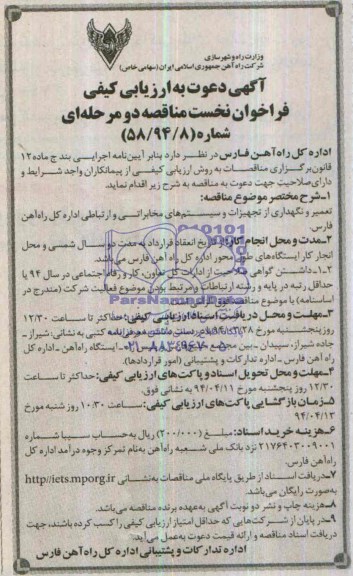 وزارت راه و شهرسازی
شرکت راه آهن جمهوری اسلامی ایران (سهامی خاص)
آگهی دعوت به ارزیابی کیفی
فراخوان نخست مناقصه دو مرحله‌ای
شماره (۵۸/۹۴/۸)
اداره کل راه آهن فارس در نظر دارد بنابر آیین‌نامه اجرایی بند ج ماده ۱۲
قانون برگزاری مناقصات به روش ارزیابی کیفی از پیمانکاران واجد شرایط و
دارای صلاحیت جهت دعوت به مناقصه به شرح زیر اقدام نماید.
۱-شرح مختصر موضوع مناقصه:
تعمیر و نگهداری از تجهیزات و سیستم‌های مخابراتی و ارتباطی اداره کل راه آهن
فارس.
۲-مدت و محل انجام کار: از تاریخ انعقاد قرارداد به مدت دو سال شمسی و محل
انجام کار ایستگاه‌های طول محور اداره کل راه آهن فارس می‌باشد.
۲-۱-داشتن گواهی صلاحیت از ادارات کل تعاون، کار و رفاه اجتماعی در سال ۹۴ با
حداقل رتبه در پایه و رشته ارتباطات و مرتبط بودن موضوع فعالیت شرکت (مندرج در
اساسنامه) با موضوع مناقصه
۳-مهلت و محل دریافت اسناد ارزیابی کیفی: حداکثر تا ساعت ۱۲/۳۰
روز پنجشنبه مورخ کتبی به نشانی: شیراز-
جاده شیراز- سپیدان- بین ایستگاه راه آهن- اداره کل
راه آهن فارس- اداره تدارکات و پشتیبانی (امور قراردادها).
۴-مهلت و محل تحویل اسناد و پاکت‌های ارزیابی کیفی: حداکثر تا ساعت
۱۲/۳۰ روز پنجشنبه مورخ ۹۴/۰۴/۱۱ به نشانی فوق.
۵-زمان بازگشایی پاکت‌های ارزیابی کیفی: ساعت ۱۰/۳۰ روز شنبه مورخ
۹۴/۰۴/۱۳
۶-هزینه خرید اسناد: مبلغ (۲۰۰/۰۰۰) ریال به حساب سیبا شماره
۲۱۷۶۴۰۳۰۰۹۰۰۱ نزد بانک ملی شعبه راه آهن به نام تمرکز وجوه درآمد اداره کل
راه آهن فارس.
۷-دریافت اسناد از طریق پایگاه ملی مناقصات به نشانی http//iets.mporg.ir
به صورت رایگان می‌باشد.
۸-هزینه چاپ و نشر دو نوبت آگهی به عهده برنده مناقصه می‌باشد.
۹-در پایان از شرکت‌هایی که حداقل امتیاز ارزیابی کیفی را کسب کرده باشند، جهت
دریافت اسناد مناقصه و ارائه قیمت دعوت به عمل می‌آید.
اداره تدارکات و پشتیبانی اداره کل راه آهن فارس
ParsNamadData
۰۲۱-۸۸۳۴۹۶۷۰-۵